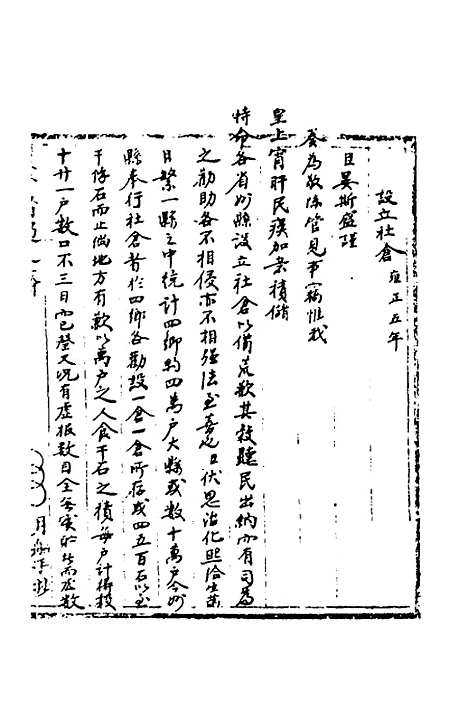 設立社倉 雍正五年
臣晏斯盛謹
奏為敬陳管見事竊惟我
皇上宵旰民瘼加意積儲
特命各省州縣設立社倉以備荒歉其穀聽民出納而有司為
之勸助各不相侵亦不相强法至善也臣伏思治化熙洽生齒
日繁一縣之中統計四鄉約四萬户大縣或數十萬户今州
縣奉行社倉者於四鄉各勸設一倉一倉所存或四五百石以至
千餘石而止倘地方有歉以萬户之人食千石之積每户計糧
十廿一户數口不三日而已罄又况有虚報數目全無實貯